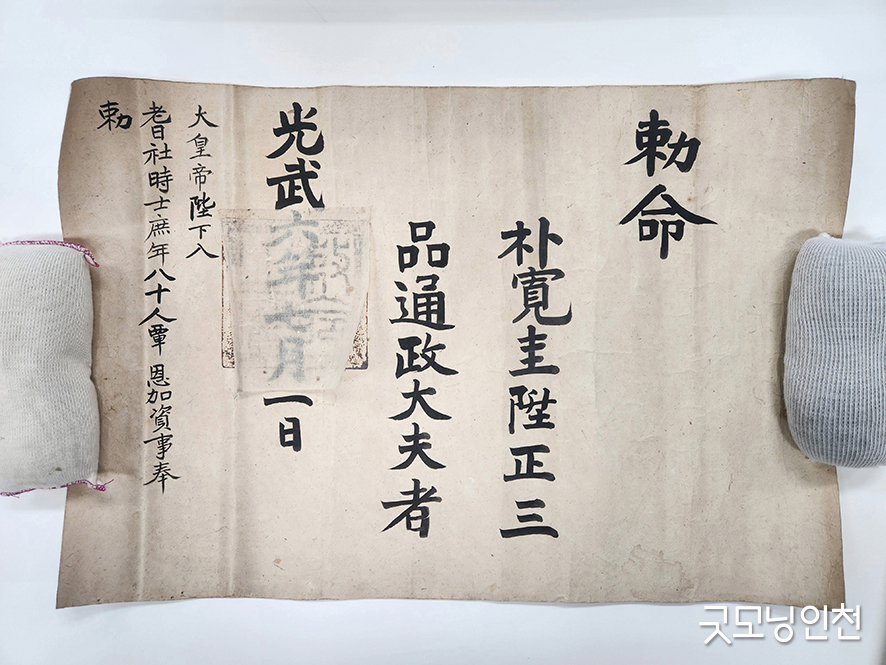 勅命
朴寬圭陞正三
品通政大夫者
光武六年七月一日
大皇帝陛下入
耆社時士庶年八十人覃 恩加資事奉
勅
굿모닝인천